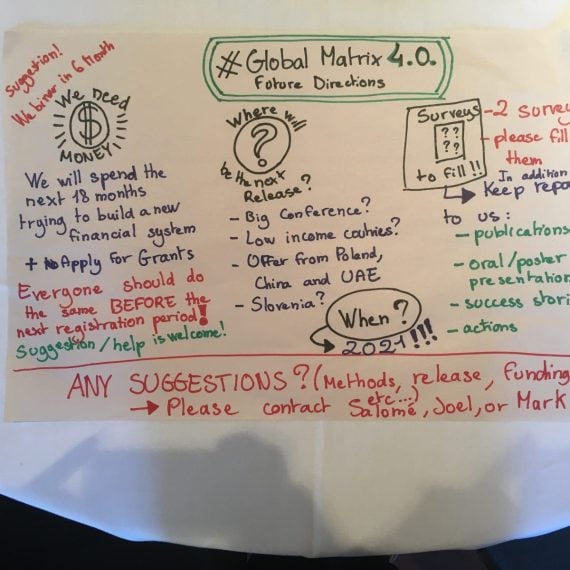 # Global Matrix 4.0.
Future Directions
Suggestion!
Webinar in 6 Month
We need
$
MONEY
We will spend the
next 18 months
trying to build a new
financial system
+ Apply for Grants
Everyone should do
the same BEFORE the
next registration period!
Suggestions/help is welcome!
Where will
?
be the next
Release?
- Big Conference?
- Low income coutries?
- Offer from Poland,
China and UAE
- Slovenia?
When?
2021!!!
Surveys
??
??
to fill!!
- 2 surve
- please fill
them
In addition
Keep repo
to us:
- publications
- oral/poster
presentation
- success stori
- actions
ANY SUGGESTIONS? (Methods, release, funding
etc...)
→ Please contact Salomé, Joel, or Mark